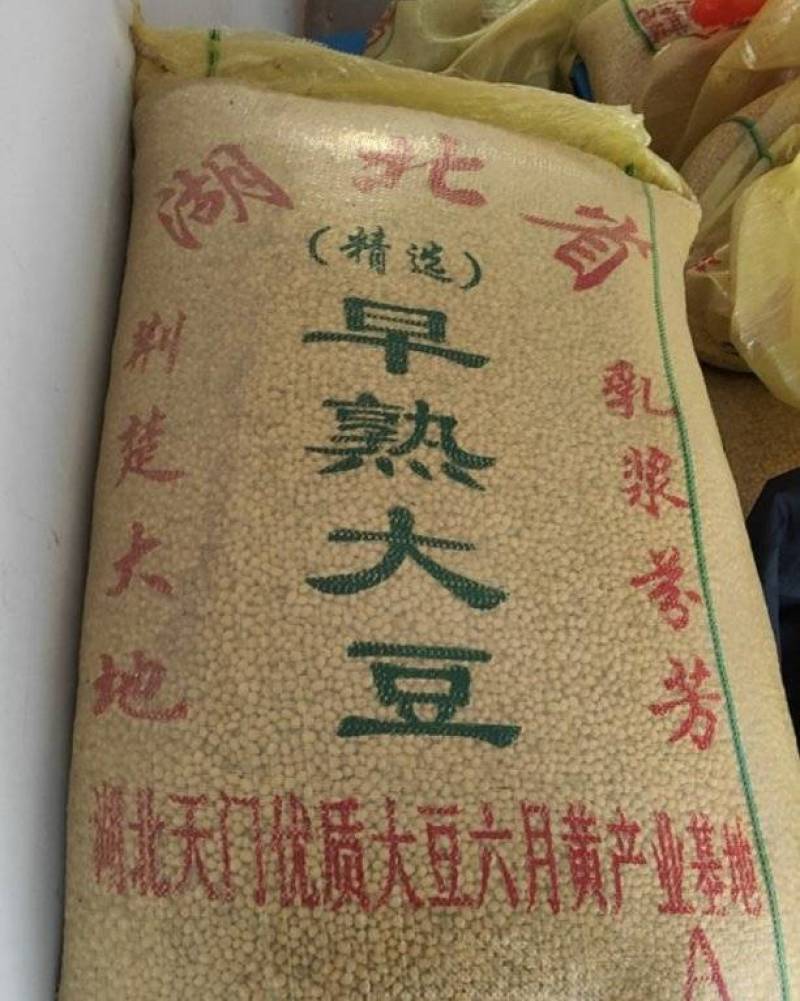 湖北省
(精选)
早熟大豆
荆楚大地
乳浆芬芳
湖北天门优质大豆六月黄产业基地
A